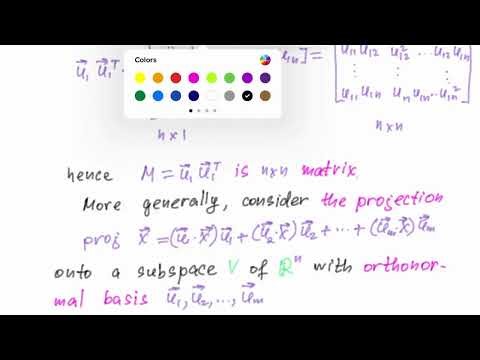 Colors
u⃗₁ u⃗₁ᵀ
u₁ₙ] =
u₁₁u₁₂ u₁₂² ... u₁₂u₁ₙ
⋮ ⋮ ⋮
u₁₁u₁ₙ u₁ₙ u₁ₙ... u₁ₙ²
n×1
n×n
hence M = u⃗₁ u⃗₁ᵀ is n×n matrix.
More generally, consider the projection
proj x⃗ = (u⃗₁·x⃗)u⃗₁ + (u⃗₂·x⃗)u⃗₂ + ··· + (u⃗ₘ·x⃗)u⃗ₘ
onto a subspace V of ℝⁿ with orthonor-
mal basis u⃗₁, u⃗₂, ..., u⃗ₘ